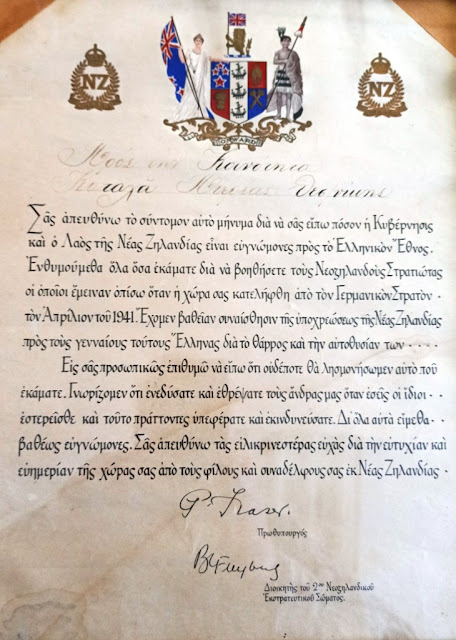 NZ NZ
ONWARD
Πρὸς τὴν Κοινότητα
Σᾶς ἀπευθύνω τὸ σύντομον αὐτὸ μήνυμα διὰ νὰ σᾶς εἴπω πόσον ἡ Κυβέρνησις
καὶ ὁ Λαὸς τῆς Νέας Ζηλανδίας εἶναι εὐγνώμονες πρὸς τὸ Ἑλληνικὸν Ἔθνος.
Ἐνθυμούμεθα ὅλα ὅσα ἐκάματε διὰ νὰ βοηθήσετε τοὺς Νεοζηλανδοὺς Στρατιώτας
οἱ ὁποῖοι ἔμειναν ὀπίσω ὅταν ἡ χώρα σας κατελήφθη ἀπὸ τὸν Γερμανικὸν Στρατὸν
τὸν Ἀπρίλιον τοῦ 1941. Ἔχομεν βαθεῖαν συναίσθησιν τῆς ὑποχρεώσεως τῆς Νέας Ζηλανδίας
πρὸς τοὺς γενναίους τούτους Ἕλληνας διὰ τὸ θάρρος καὶ τὴν αὐτοθυσίαν των
Εἰς σᾶς προσωπικῶς ἐπιθυμῶ νὰ εἴπω ὅτι οὐδέποτε θὰ λησμονήσωμεν αὐτὸ ποῦ
ἐκάματε. Γνωρίζομεν ὅτι ἐνεδύσατε καὶ ἐθρέψατε τοὺς ἄνδρας μας ὅταν ἐσεῖς οἱ ἴδιοι
ἐστερεῖσθε καὶ τοῦτο πράττοντες ὑπεφέρατε καὶ ἐκινδυνεύσατε. Δι ὅλα αὐτὰ εἴμεθα
βαθέως εὐγνώμονες. Σᾶς ἀπευθύνω τὰς εἰλικρινεστέρας εὐχὰς διὰ τὴν εὐτυχίαν καὶ
εὐημερίαν τῆς χώρας σας ἀπὸ τοὺς φίλους καὶ συναδέλφους σας ἐκ Νέας Ζηλανδίας
P. Fraser.
Πρωθυπουργός
Διοικητὴς τοῦ 2ου Νεοζηλανδικοῦ
Ἐκστρατευτικοῦ Σώματος.